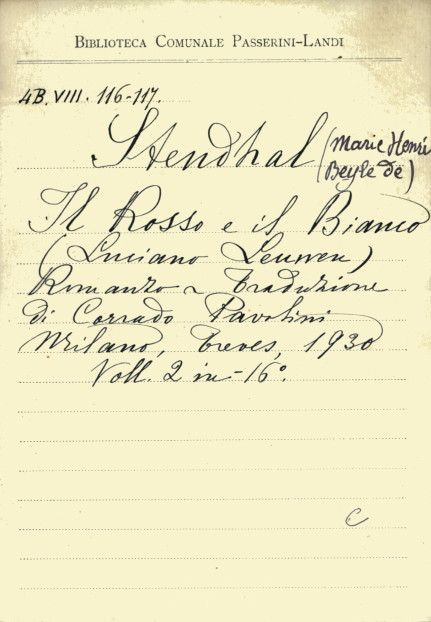 Biblioteca Comunale Passerini-Landi
4B. VIII. 116-117.
Stendhal (Marie Henri
Beyle de)
Il Rosso e il Bianco
(Luciano Leuwen)
Romanzo - Traduzione
di Corrado Pavolini
Milano, Treves, 1930
Voll. 2 in-16°.
C